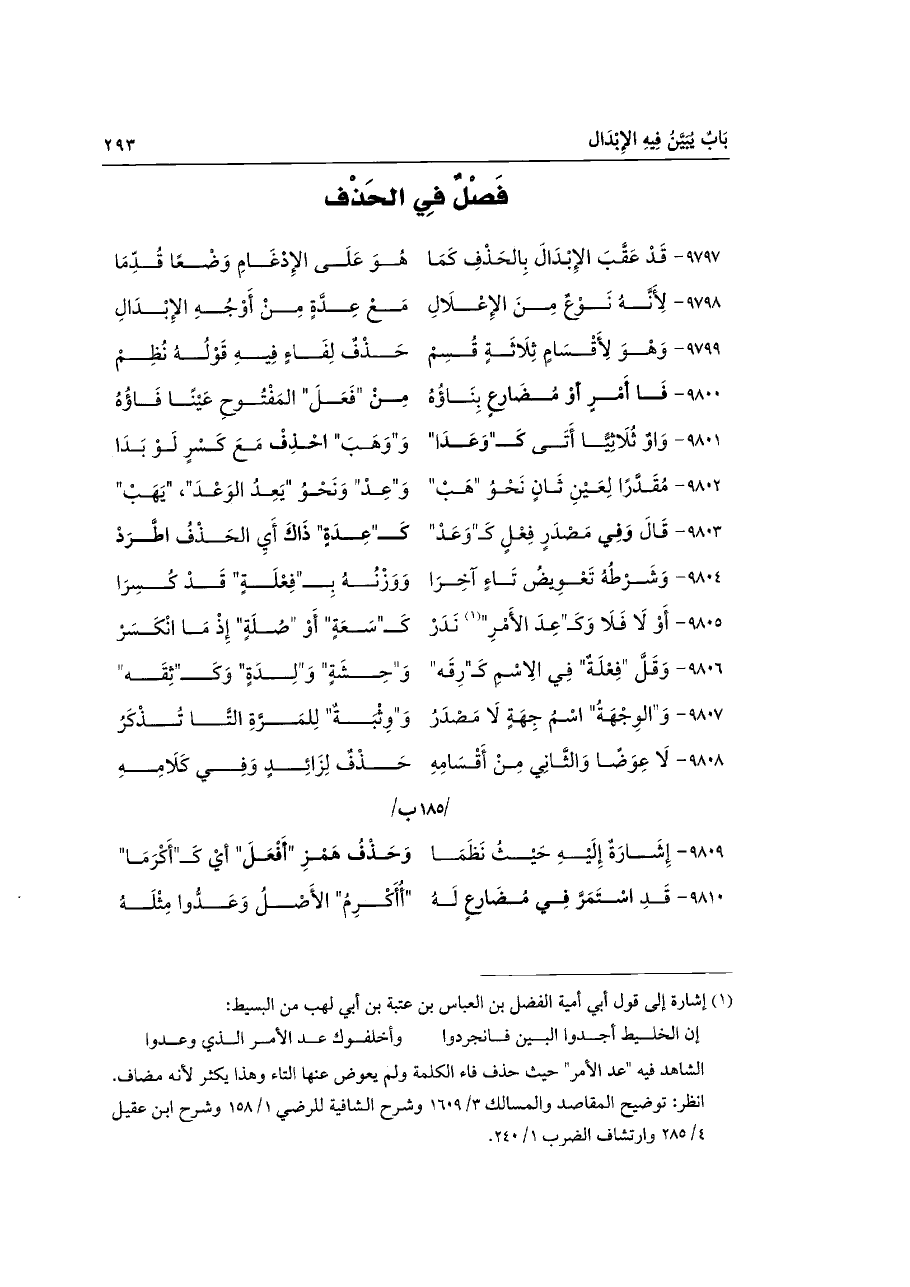 بَابٌ يُبَيَّنُ فِيهِ الإِبْدَال ٢٩٣
فَصْلٌ فِي الحَذْف
٩٧٩٧- قَدْ عَقَّبَ الإِبْدَالَ بِالحَذْفِ كَمَا هُوَ عَلَى الإِدْغَامِ وَضْعًا قُدِّمَا
٩٧٩٨- لِأَنَّهُ نَوْعٌ مِنَ الإِعْلَالِ مَعْ عِدَّةٍ مِنْ أَوْجُهِ الإِبْدَالِ
٩٧٩٩- وَهْوَ لِأَقْسَامٍ ثَلَاثَةٍ قُسِمْ حَذْفٌ لِفَاءٍ فِيهِ قَوْلُهُ نُظِمْ
٩٨٠٠- فَا أَمْرٍ أوْ مُضَارِعٍ بِنَاؤُهُ مِنْ "فَعَلَ" المَفْتُوحِ عَيْنًا فَاؤُهُ
٩٨٠١- وَاوٌ ثُلَاثِيًّا أَتَى كَـ"وَعَدَا" وَ"وَهَبَ" احْذِفْ مَعَ كَسْرٍ لَوْ بَدَا
٩٨٠٢- مُقَدَّرًا لِعَيْنِ ثَانٍ نَحْوُ "هَبْ" وَ"عِدْ" وَنَحْوُ "يَعِدُ الوَعْدَ"، "يَهَبْ"
٩٨٠٣- قَالَ وَفِي مَصْدَرِ فِعْلٍ كَـ"وَعَدْ" كَـ"عِدَةٍ" ذَاكَ أَيِ الحَذْفُ اطَّرَدْ
٩٨٠٤- وَشَرْطُهُ تَعْوِيضُ تَاءٍ آخِرَا وَوَزْنُهُ بِـ"فِعْلَةٍ" قَدْ كُسِرَا
٩٨٠٥- أَوْ لَا فَلَا وَكَـ"عِدَ الأَمْرِ"(١) نَدَرْ كَـ"سَعَةٍ" أَوْ "صُلَةٍ" إِذْ مَا انْكَسَرْ
٩٨٠٦- وَقَلَّ "فِعْلَةٌ" فِي الاِسْمِ كَـ"رِقَه" وَ"حِشَةٍ" وَ"لِدَةٍ" وَكَـ"ثِقَه"
٩٨٠٧- وَ"الوِجْهَةُ" اسْمُ جِهَةٍ لَا مَصْدَرُ وَ"وِثْبَةٌ" لِلمَرَّةِ التَّا تُذْكَرُ
٩٨٠٨- لَا عِوَضًا وَالثَّانِي مِنْ أَقْسَامِهِ حَذْفٌ لِزَائِدٍ وَفِي كَلَامِهِ
/١٨٥ب/
٩٨٠٩- إِشَارَةٌ إِلَيْهِ حَيْثُ نَظَمَا وَحَذْفُ هَمْزِ "أَفْعَلَ" أيْ كَـ"أَكْرَمَا"
٩٨١٠- قَدِ اسْتَمَرَّ فِي مُضَارِعٍ لَهُ "أُأَكْرِمُ" الأَصْلُ وَعَدُّوا مِثْلَهُ
(١) إشارة إلى قول أبي أمية الفضل بن العباس بن عتبة بن أبي لهب من البسيط:
إن الخليط أجدوا البين فانجردوا وأخلفوك عد الأمر الذي وعدوا
الشاهد فيه "عد الأمر" حيث حذف فاء الكلمة ولم يعوض عنها التاء وهذا يكثر لأنه مضاف.
انظر: توضيح المقاصد والمسالك ٣/ ١٦٠٩ وشرح الشافية للرضي ١/ ١٥٨ وشرح ابن عقيل
٤/ ٢٨٥ وارتشاف الضرب ١/ ٢٤٠.